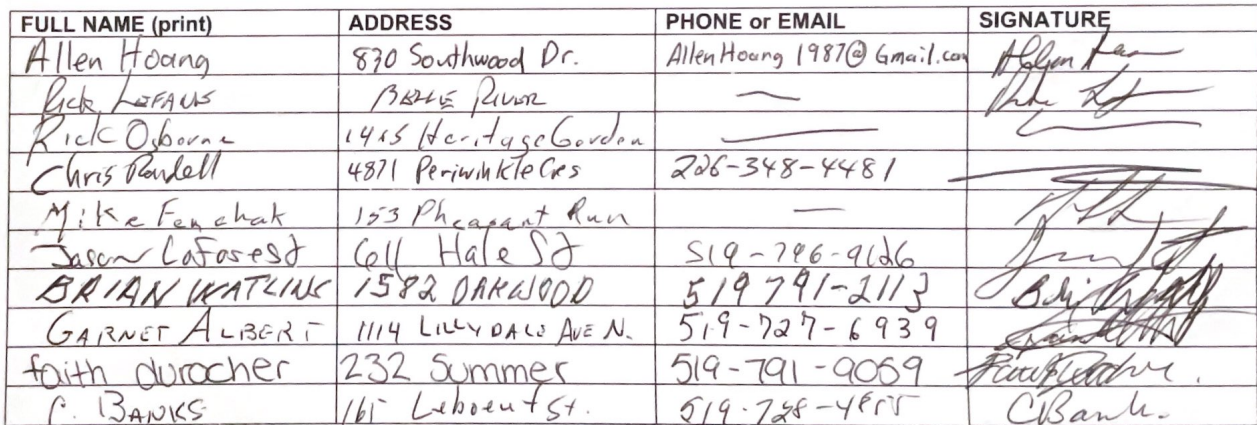 FULL NAME (print) ADDRESS PHONE or EMAIL SIGNATURE
Allen Hoang 870 Southwood Dr. AllenHoang1987@Gmail.com
Rick BELLE RIVER —
Rick Osborne Heritage Garden —
Chris Randell 4871 Periwinkle Cres 226-348-4481
Mike Fenchak 153 Pheasant Run —
Jason LaForest Hale St
BRIAN WATLING 1582 OAKWOOD 519 791-2113
GARNET ALBERT 1114 LILLYDALE AVE N. 519-727-6939
faith durocher 232 Summer 519-791-9059
C. BANKS Leboeuf St. C Bank